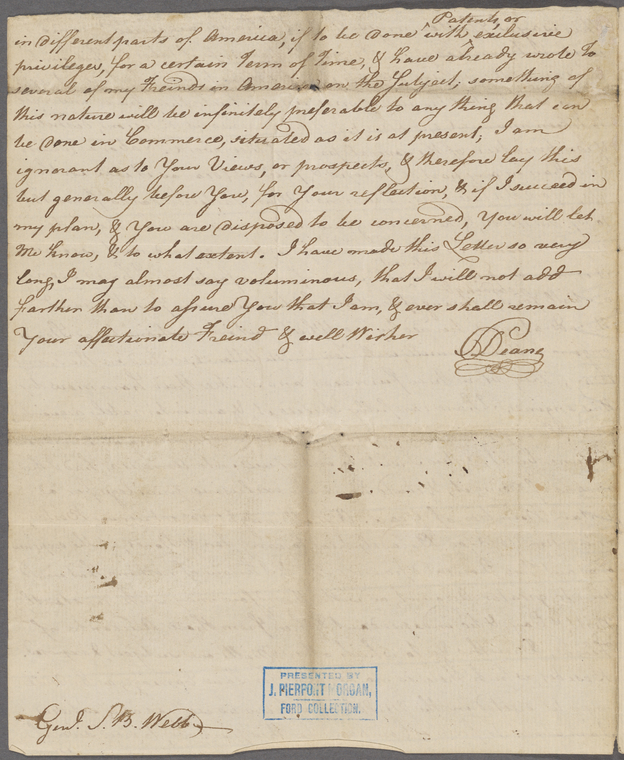 Patents, or
in different parts of America, if to be done ^ with exclusive
privileges, for a certain Term of Time, & have already wrote to
several of my Freinds in America on the Subject; something of
this nature will be infinitely preferable to any thing that can
be done in Commerce, situated as it is at present; I am
ignorant as to Your Views, or prospects, & therefore lay this
but generally before You, for Your reflection, & if I succeed in
my plan, & You are disposed to be concerned, You will let
Me know, & to what extent. I have made this Letter so very
long, I may almost say voluminous, that I will not add
farther than to assure You that I am, & ever shall remain
Your affectionate Freind & well Wisher
S Deane
PRESENTED BY
J. PIERPONT MORGAN,
FORD COLLECTION.
Genl. S. B. Webb